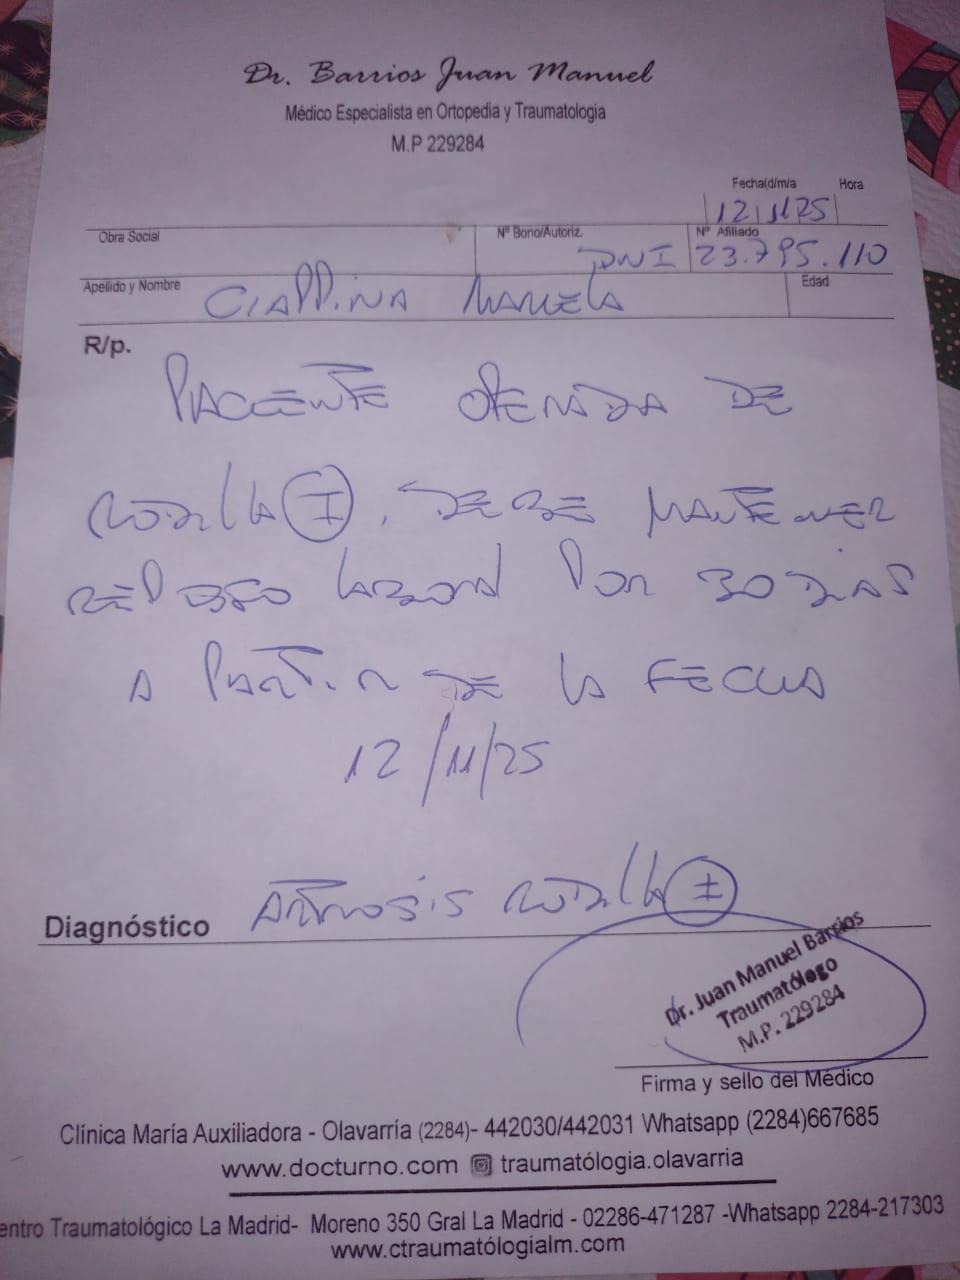 Dr. Barrios Juan Manuel
Médico Especialista en Ortopedia y Traumatologia
M.P 229284
Fecha(d/m/a Hora
12 11 25
Obra Social Nº Bono/Autoriz. Nº Afiliado
DNI 23.795.110
Apellido y Nombre CIAPPINA MARCELA Edad
R/p.
PACIENTE OPERADA DE
RODILLA I, DEBE MANTENER
REPOSO LABORAL POR 30 DIAS
A PARTIR DE LA FECHA
12/11/25
Diagnóstico ARTROSIS RODILLA I
Dr. Juan Manuel Barrios
Traumatólogo
M.P. 229284
Firma y sello del Médico
Clínica María Auxiliadora - Olavarría (2284)- 442030/442031 Whatsapp (2284)667685
www.docturno.com traumatólogia.olavarria
entro Traumatológico La Madrid- Moreno 350 Gral La Madrid - 02286-471287 -Whatsapp 2284-217303
www.ctraumatólogialm.com